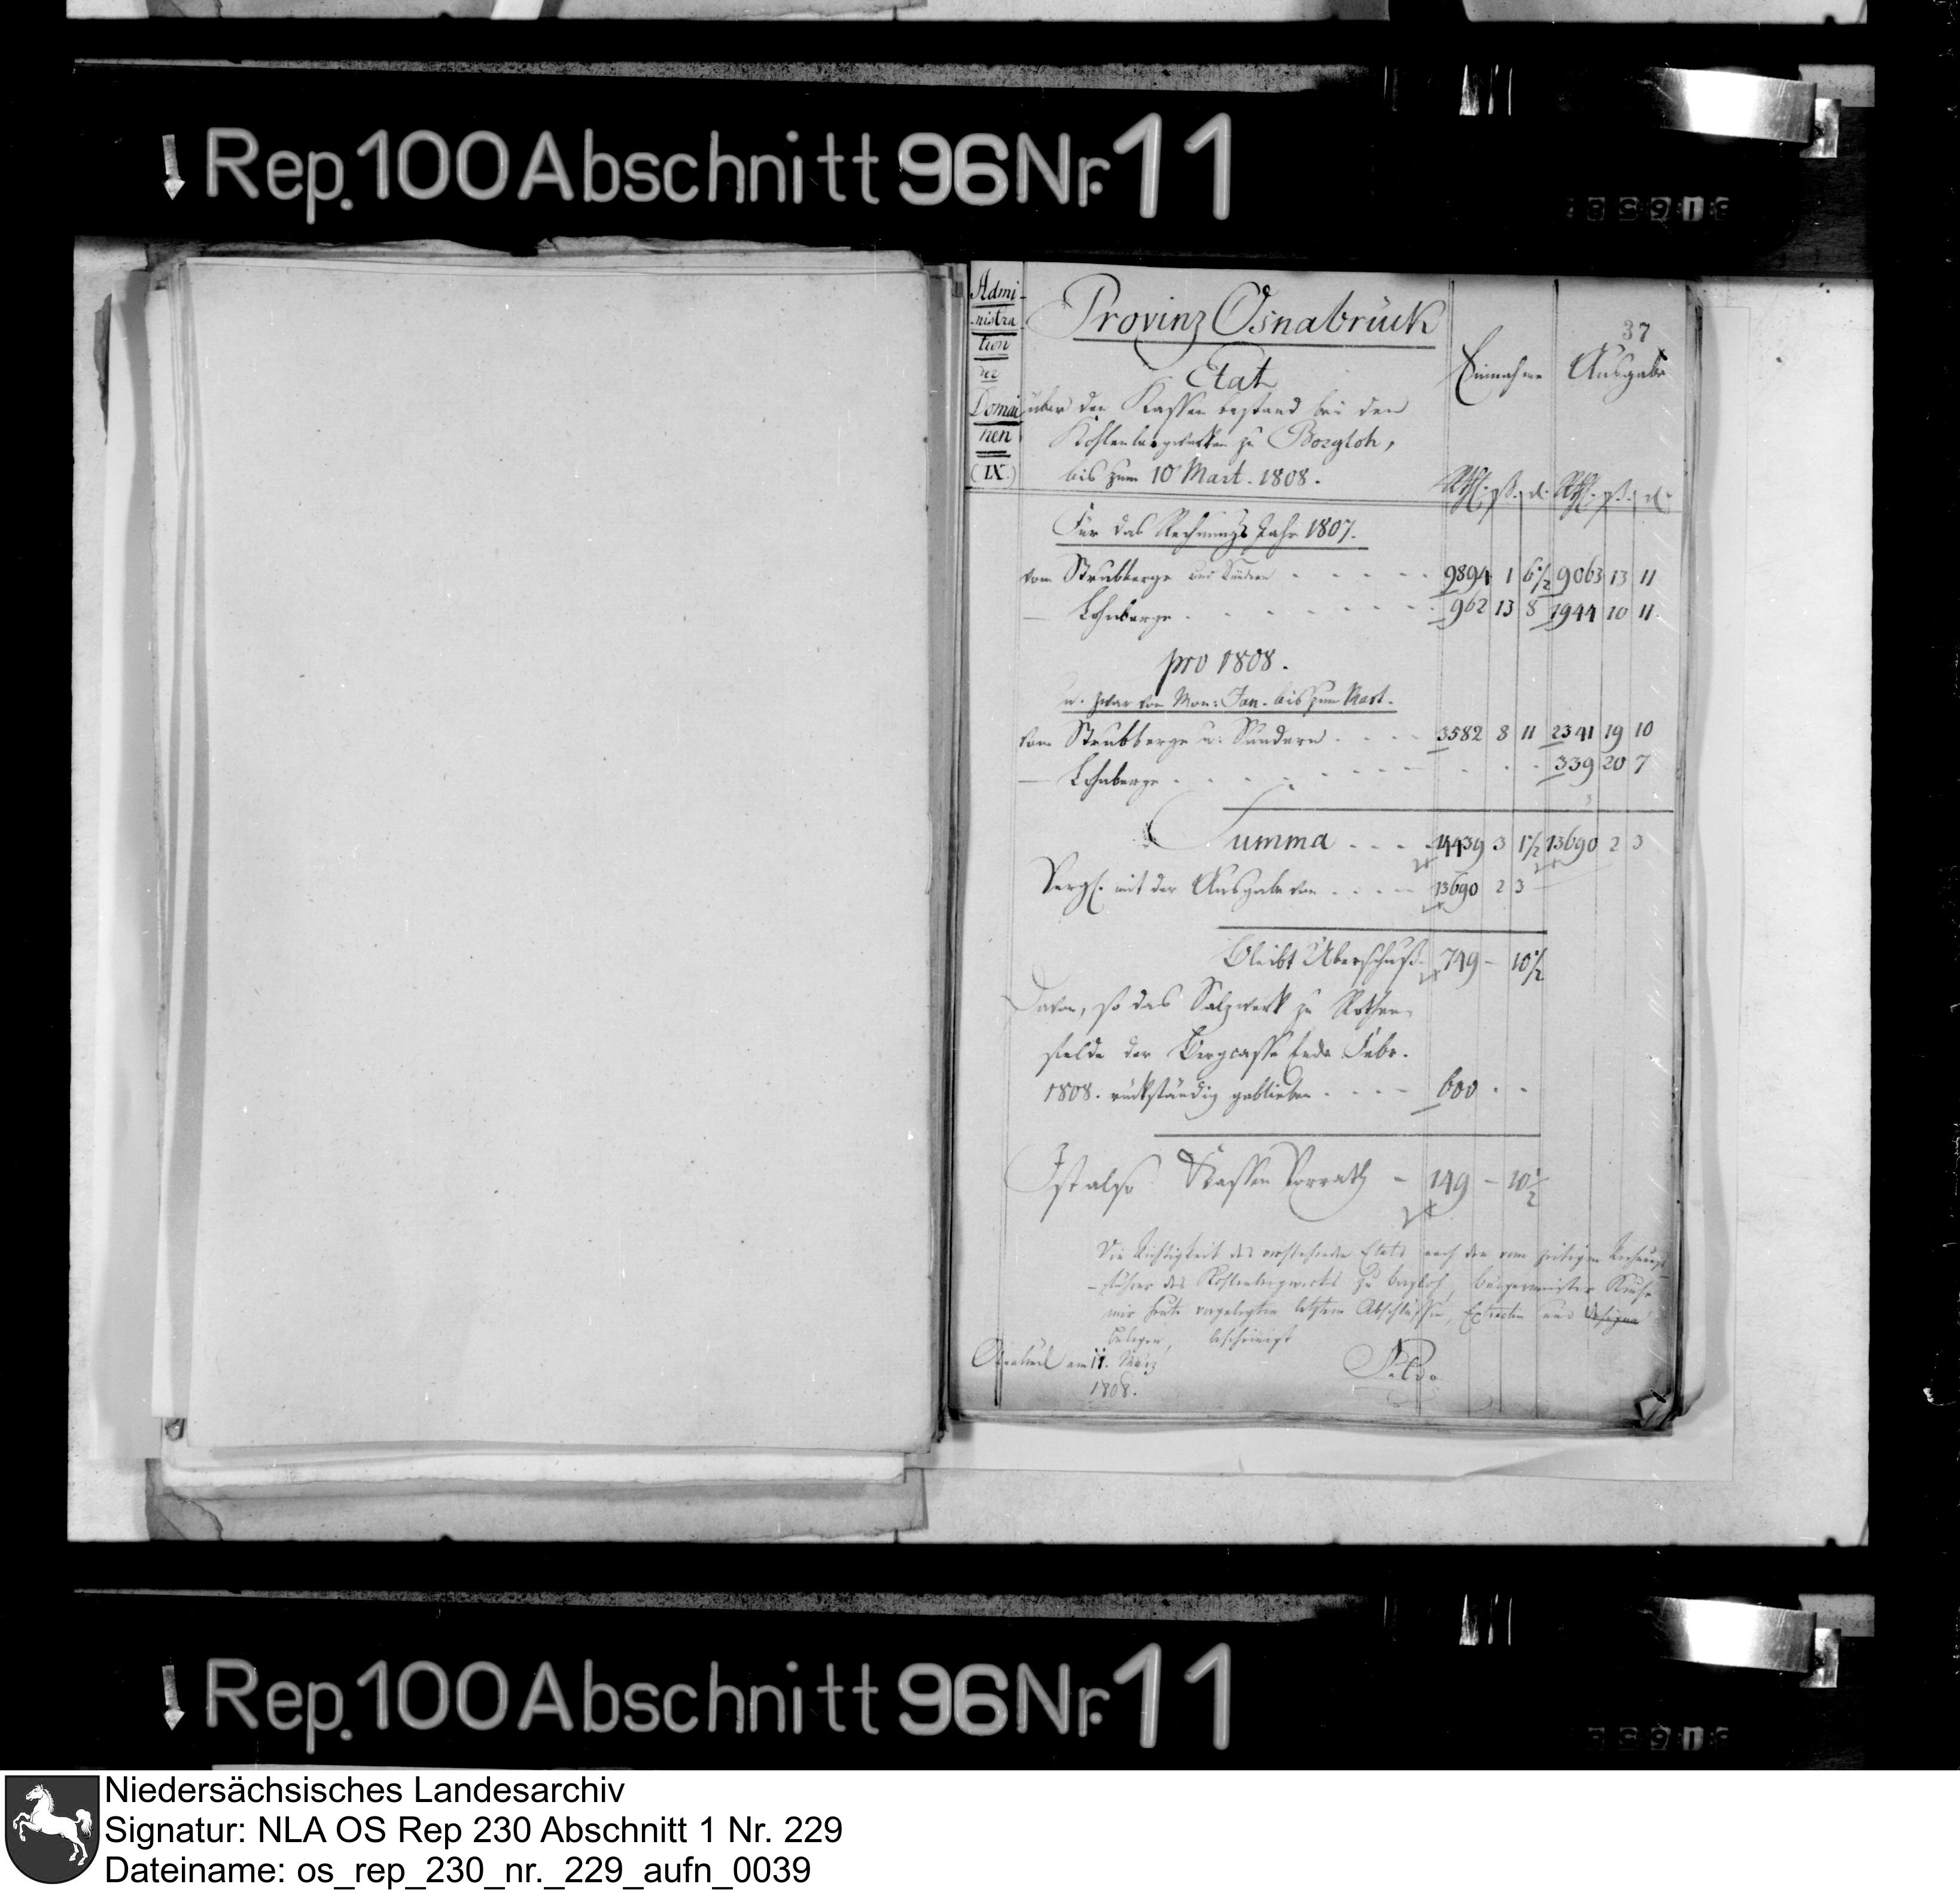 Rep. 100 Abschnitt 96 Nr. 11
Admi-
nistra
tion
der
Domai
nen
(IX.)
Provinz Osnabrück
37
Etat
Einnahme Ausgabe
über den Kassen bestand bei den
Kohlenbergwerken zu Borgloh,
bis zum 10 Mart. 1808.
Rthl. ß. d. Rthl. ß. d.
Für das Rechnungs Jahr 1807.
vom Strubberge und Sundern 9894 1 6 1/2 9063 13 11
— Lohnberge 962 13 8 1944 10 11.
pro 1808.
u. zwar von Mon: Jan. bis zum Mart.
vom Strubberge u: Sundern 3582 8 11 2341 19 10
— Lohnberge 339 20 7
Summa 14439 3 1 1/2 13690 2 3
Vergl. mit der Ausgabe von 13690 2 3
Bleibt Überschuß 749 – 10 1/2
Davon, so das Salzwerk zu Rothen-
felde der Bergcasse Ende Febr.
1808. rückständig geblieben 600 - -
Ist also Kassen Vorrath – 149 – 10 1/2
Die Richtigkeit des vorstehenden Etats nach den vom zeitigen Rechnungs
-führer des Kohlenbergwerks zu Borgloh, Bürgermeister
mir heute vorgelegten letzten Abschlüssen, Extracten und
Belegen, bescheinigt
Osnabrück am 11. März
1808.
Rep. 100 Abschnitt 96 Nr. 11
Niedersächsisches Landesarchiv
Signatur: NLA OS Rep 230 Abschnitt 1 Nr. 229
Dateiname: os_rep_230_nr._229_aufn_0039